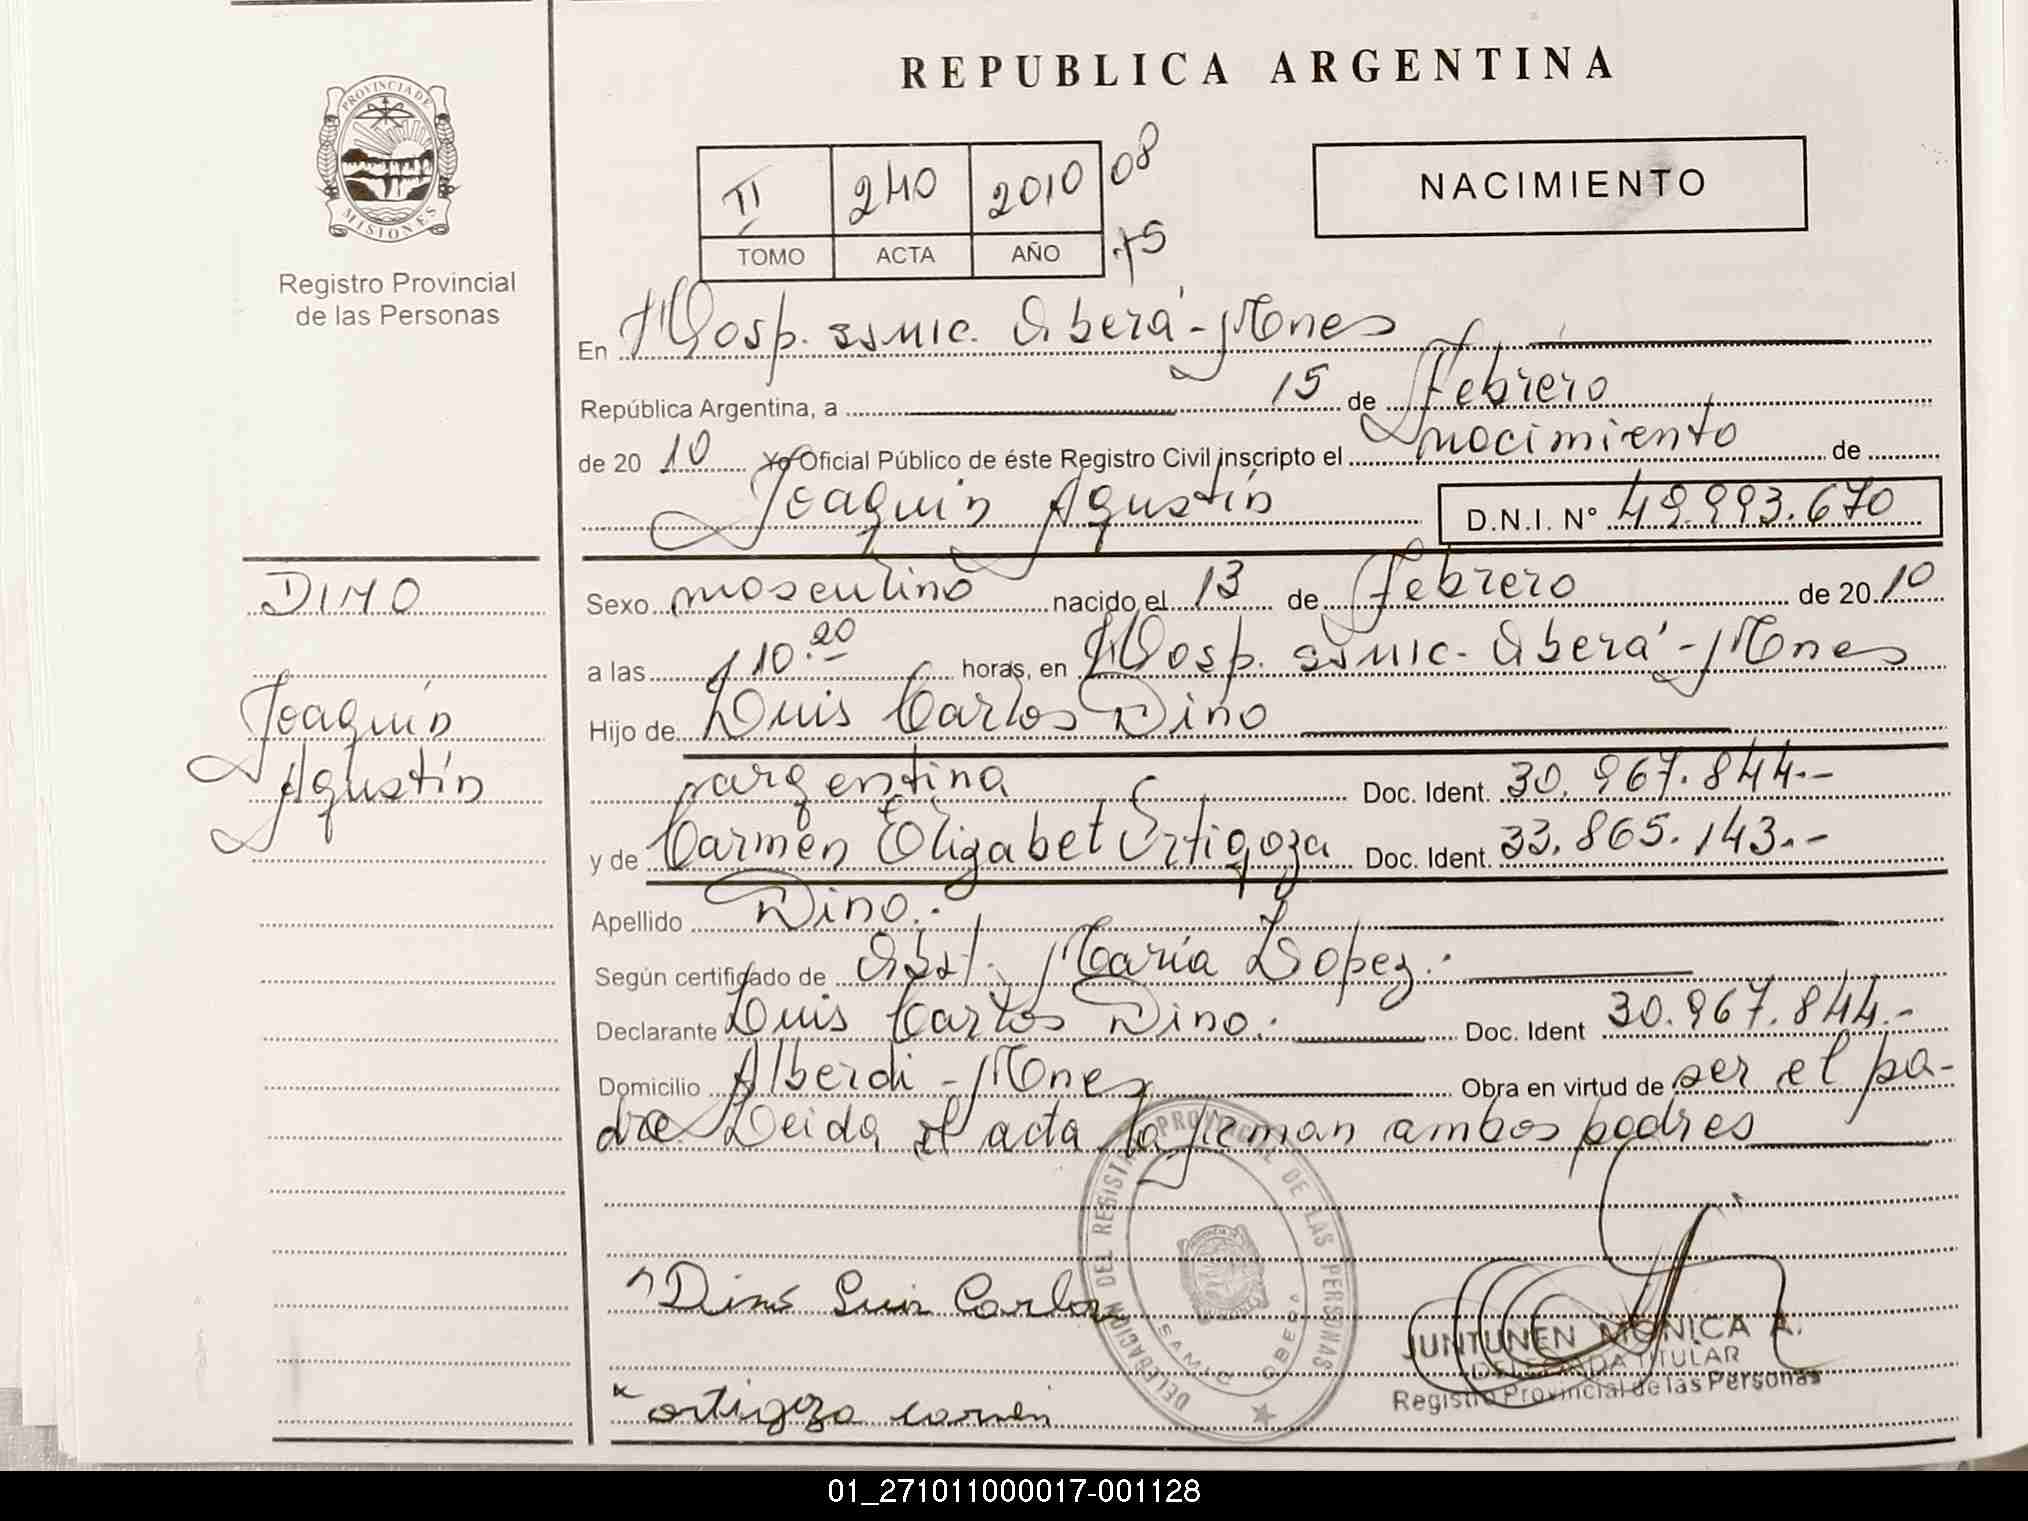 REPUBLICA ARGENTINA
PROVINCIA DE
MISIONES
Registro Provincial
de las Personas
II 240 2010 08
TOMO ACTA AÑO 75
NACIMIENTO
En Hosp. SSMIC. Oberá - Mnes
República Argentina, a 15 de Febrero
de 2010 Yo Oficial Público de éste Registro Civil inscripto el nacimiento de
Joaquín Agustín D.N.I. Nº 49.993.670
DINO
Joaquín
Agustín
Sexo masculino nacido el 13 de Febrero de 2010
a las 10.20 horas, en Hosp. SSMIC - Oberá - Mnes
Hijo de Luis Carlos Dino
argentina Doc. Ident. 30.967.844.-
y de Carmen Elizabet Ortigoza Doc. Ident. 33.865.143.-
Apellido Dino.
Según certificado de Obst. María Lopez.
Declarante Luis Carlos Dino. Doc. Ident 30.967.844.-
Domicilio Alberdi - Mnes Obra en virtud de ser el pa-
dre. Leida el acta la firman ambos padres
DELEGACION DEL REGISTRO PROVINCIAL DE LAS PERSONAS
SAMIC OBERA
Dino Luis Carlos
ortigoza carmen
JUNTUNEN MONICA A.
DELEGADA TITULAR
Registro Provincial de las Personas
01_271011000017-001128